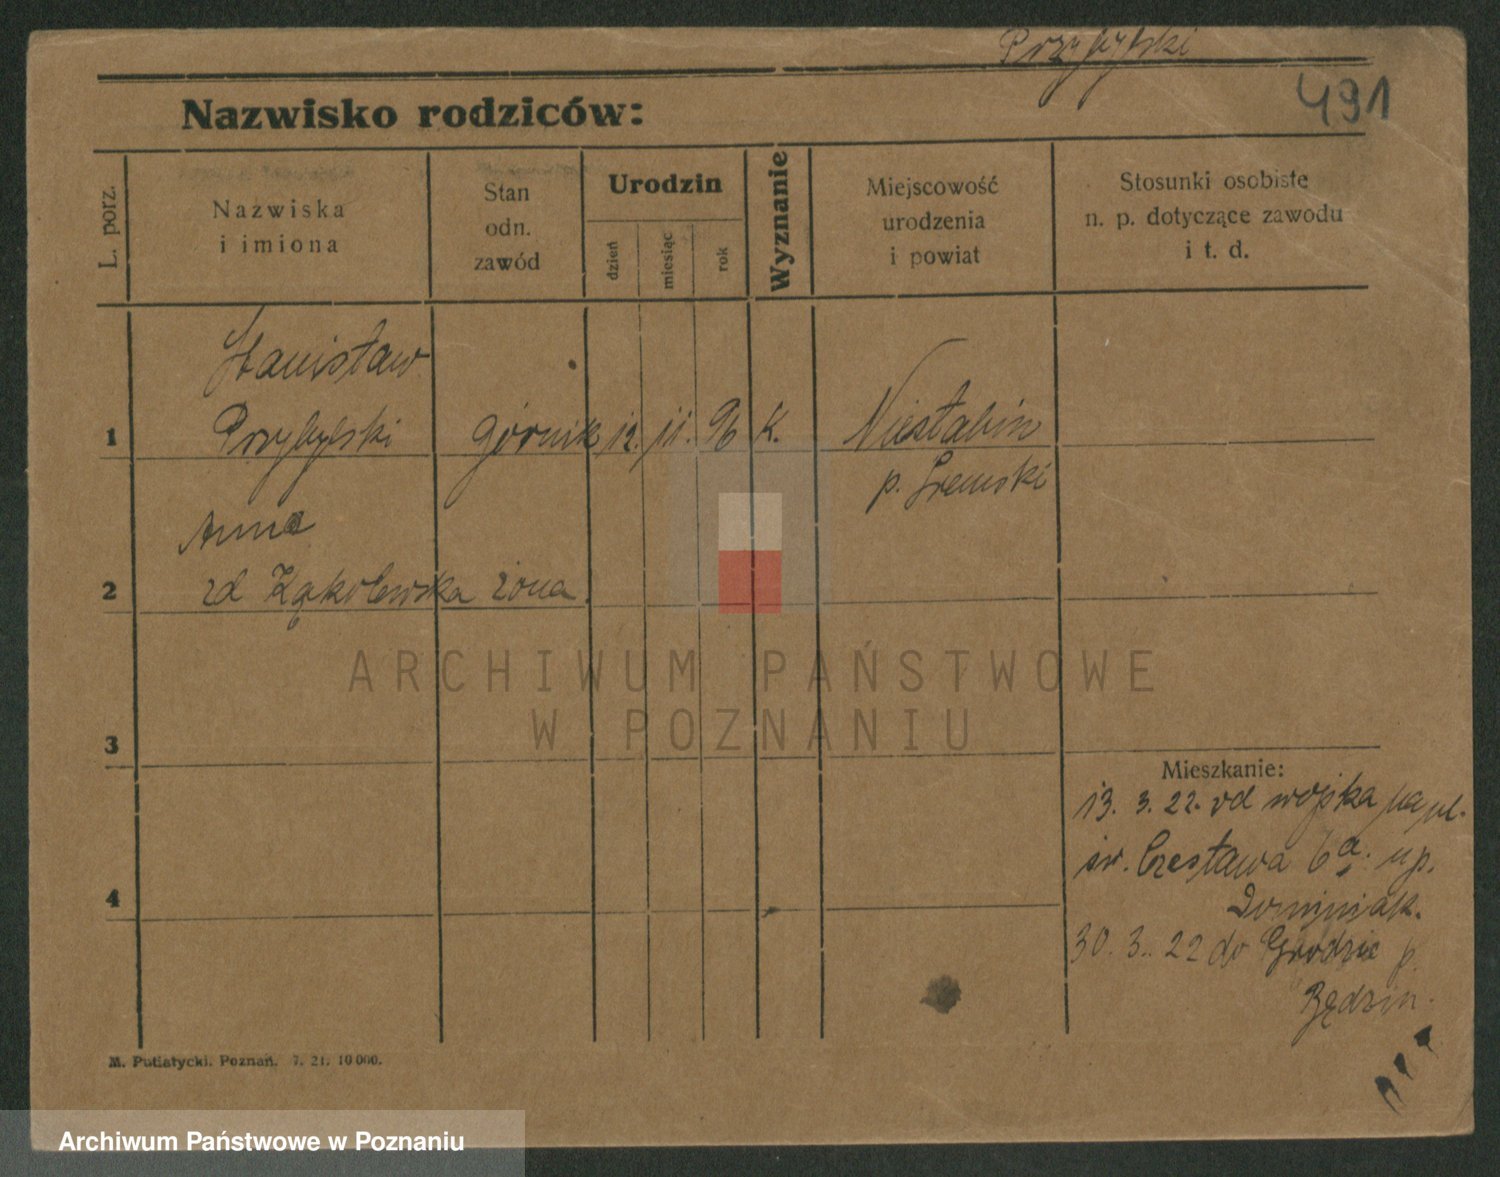 Przybylski
491
Nazwisko rodziców:
L. porz.
Nazwiska
i imiona
Stan
odn.
zawód
Urodzin
dzień
miesiąc
rok
Wyznanie
Miejscowość
urodzenia
i powiat
Stosunki osobiste
n. p. dotyczące zawodu
i t. d.
Stanisław
1 Przybylski górnik 12. 11. 96 K. Niesłabin
p. Śremski
Anna
2 zd Żąkolewska żona.
3
4
Mieszkanie:
13. 3. 22. od wojska na pl.
św. Czesława 6a. u p.
Dominiak.
30. 3. 22 do Grodzic p.
Będzin.
M. Putiatycki. Poznań. 7. 21. 10000.
ARCHIWUM PAŃSTWOWE
W POZNANIU
Archiwum Państwowe w Poznaniu